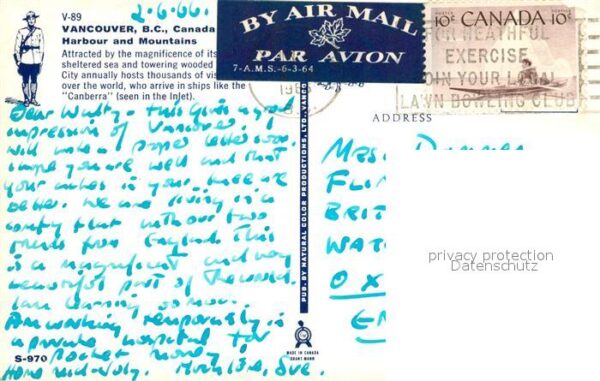 2.6.66.
V-89
VANCOUVER, B.C., Canada
Harbour and Mountains
Attracted by the magnificence of its
sheltered sea and towering wooded
City annually hosts thousands of vis
over the world, who arrive in ships like the
"Canberra" (seen in the Inlet).
BY AIR MAIL
PAR AVION
7-A.M.S.-6-3-64
10c CANADA 10c
FOR HEATHFUL
EXERCISE
JOIN YOUR LOCAL
LAWN BOWLING CLUB
ADDRESS
Dear Watty - this gives a good
impression of Vancouver. I
will write a proper letter soon.
I hope you are well and that
your aches in your knee are
better. We are living in a
comfy flat with our two
friends from England. This
is a magnificent and very
beautiful part of the world.
I am learning so much.
Am working temporarily in
a private hospital for
pocket money!
Home mid-July. Much love, Sue.
PUB. BY NATURAL COLOR PRODUCTIONS LTD., VANCO
MADE IN CANADA
GRANT-MANN
S-970
MRS.
FLI
BRIT
WAT
OX
EN
privacy protection
Datenschutz